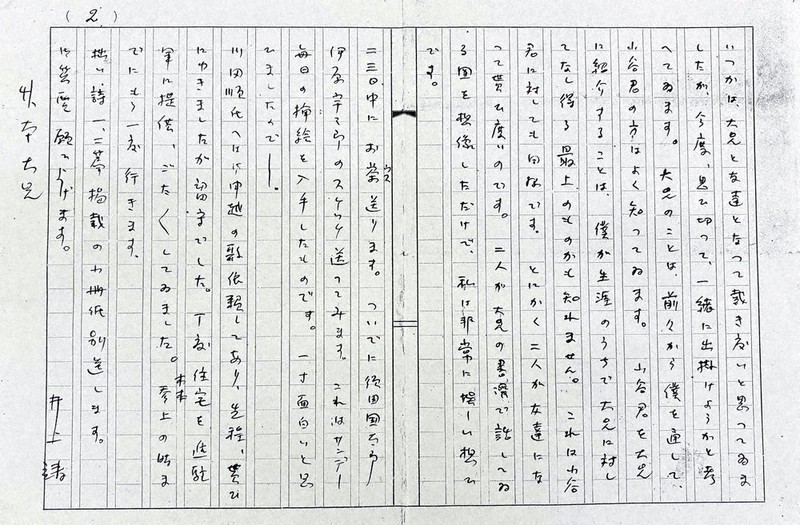 (2)
いつかは大兄と友達となつて戴き度いと思つてゐま
したが、今度、思ひ切つて、一緒に出掛けようかと考
へてゐます。大兄のことは、前々から僕を通して、
小谷君の方はよく知つてゐます。小谷君を大兄
に紹介することは、僕が生涯のうちで大兄に対し
てなし得る最上のものかも知れません。これは小谷
君に対しても同なです。とにかく二人が友達にな
つて貰ひ度いのです。二人が大兄の書斎で話してゐ
る図を想像しただけで、私は非常に楽しい想ひ
です。
二三日中にお茶送ります。ついでに須田国太郎
伊原宇三郎のスケッチ送つてみます。これはサンデー
毎日の挿絵を入手したものです。一寸面白いと思
ひましたので――。
川田順氏へは中越の歌依頼してあり、先程、貰ひ
にゆきましたが留守でした。丁度住宅を進駐
軍に提供、ごた〱してゐました。参上の時ま
でにもう一度行きます。
拙い詩一、二篇掲載の小冊氏別送します。
御笑覧願上げます。
井上靖
大兄